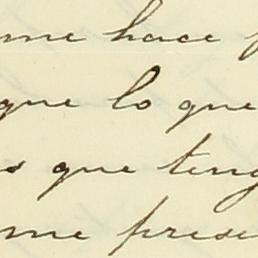 me hace
que lo que
s que teng
me prese